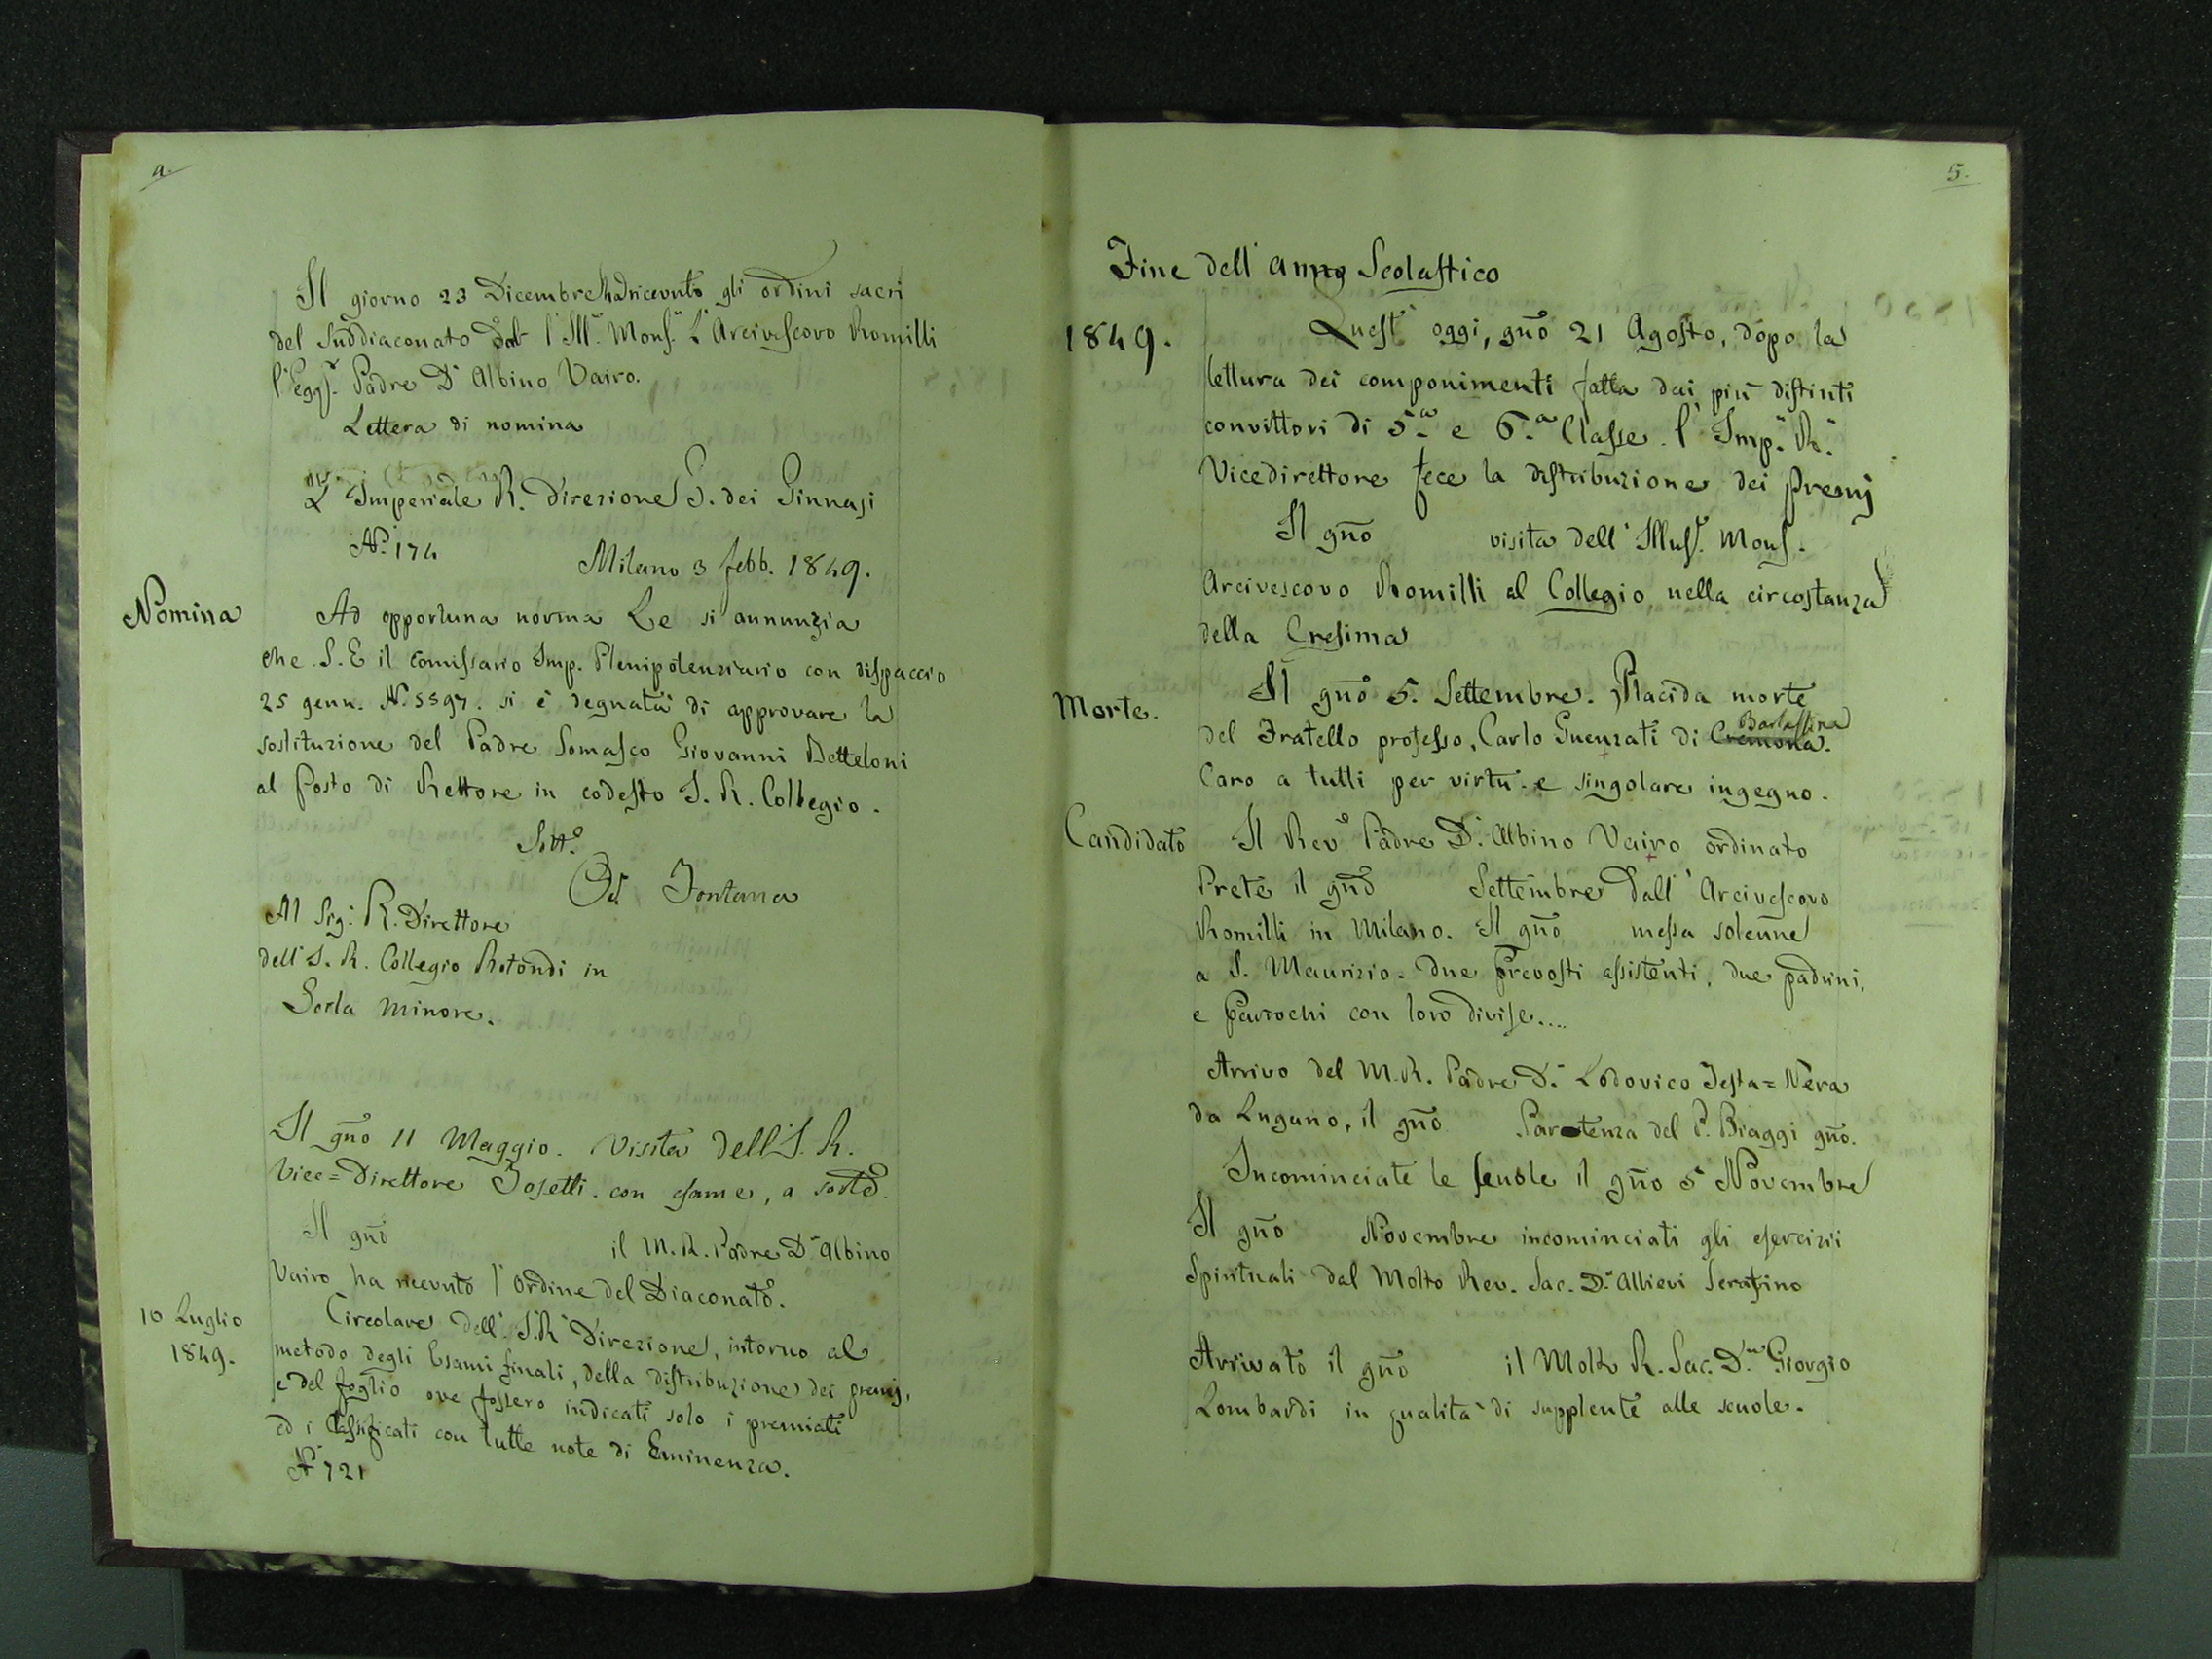 4.
Il giorno 23 Dicembre ha ricevuto gli ordini sacri
del Suddiaconato dal l'Ill. Mons. L'Arciuescovo Romilli
l'Egg. Padre D. Albino Vairo.
Lettera di nomina
L' Imperiale R. Direzione G. dei Ginnasi
N.º 174
Milano 3 febb. 1849.
Nomina
Ad opportuna norma Le si annunzia
che S. E il comissario Imp. Plenipotenziario con dispaccio
25 genn. N. 5597. si è degnata di approvare la
sostituzione del Padre Somasco Giovanni Betteloni
al posto di Rettore in codesto I. R. Collegio.
Sott.º
Fontana
Al Sig. R. Direttore
dell'I. R. Collegio Rotondi in
Gorla Minore.
Il gño 11 Maggio. Visita dell'I. R.
Vice=Direttore Josetti. con esame, a
Il gño il M. R. Padre D. Albino
Vairo ha ricevuto l'Ordine del Diaconato.
10 Luglio
1849.
Circolare dell'I. R. Direzione, intorno al
metodo degli Esami finali, della distribuzione dei premj,
e del foglio ove fossero indicati solo i premiati
ed i Classificati con tutte note di Eminenza.
N. 721
5.
Fine dell'anno Scolastico
1849.
Quest' oggi, gño 21 Agosto, dopo la
lettura dei componimenti fatta dai più distinti
convittori di 5.a e 6.a Classe. l' Imp. R.
Vicedirettore fece la distribuzione dei premj
Il gño visita dell'Illus. Mons.
Arcivescovo Romilli al Collegio nella circostanza
della Cresima
Morte.
Il gño 5. Settembre. Placida morte
Barlassina
del Fratello professo, Carlo Guenzati di Cremona.
Caro a tutti per virtù e singolare ingegno.
Candidato
Il Rev.º Padre D. Albino Vairo ordinato
Prete il gño Settembre dall' Arcivescovo
Romilli in Milano. Il gño messa solenne
a S. Maurizio. due Prevosti assistenti, due padrini,
e Parrochi con loro divise....
Arrivo del M. R. Padre D. Lodovico Testa=Nera
da Lugano, il gño Partenza del P. Biaggi gño.
Incominciate le scuole il gño 5 Novembre
Il gño Novembre incominciati gli esercizii
Spirituali dal Molto Rev. Sac. D. Allievi Serafino
Arrivato il gño il Molto R. Sac. D. Giorgio
Lombardi in qualità di supplente alle scuole.